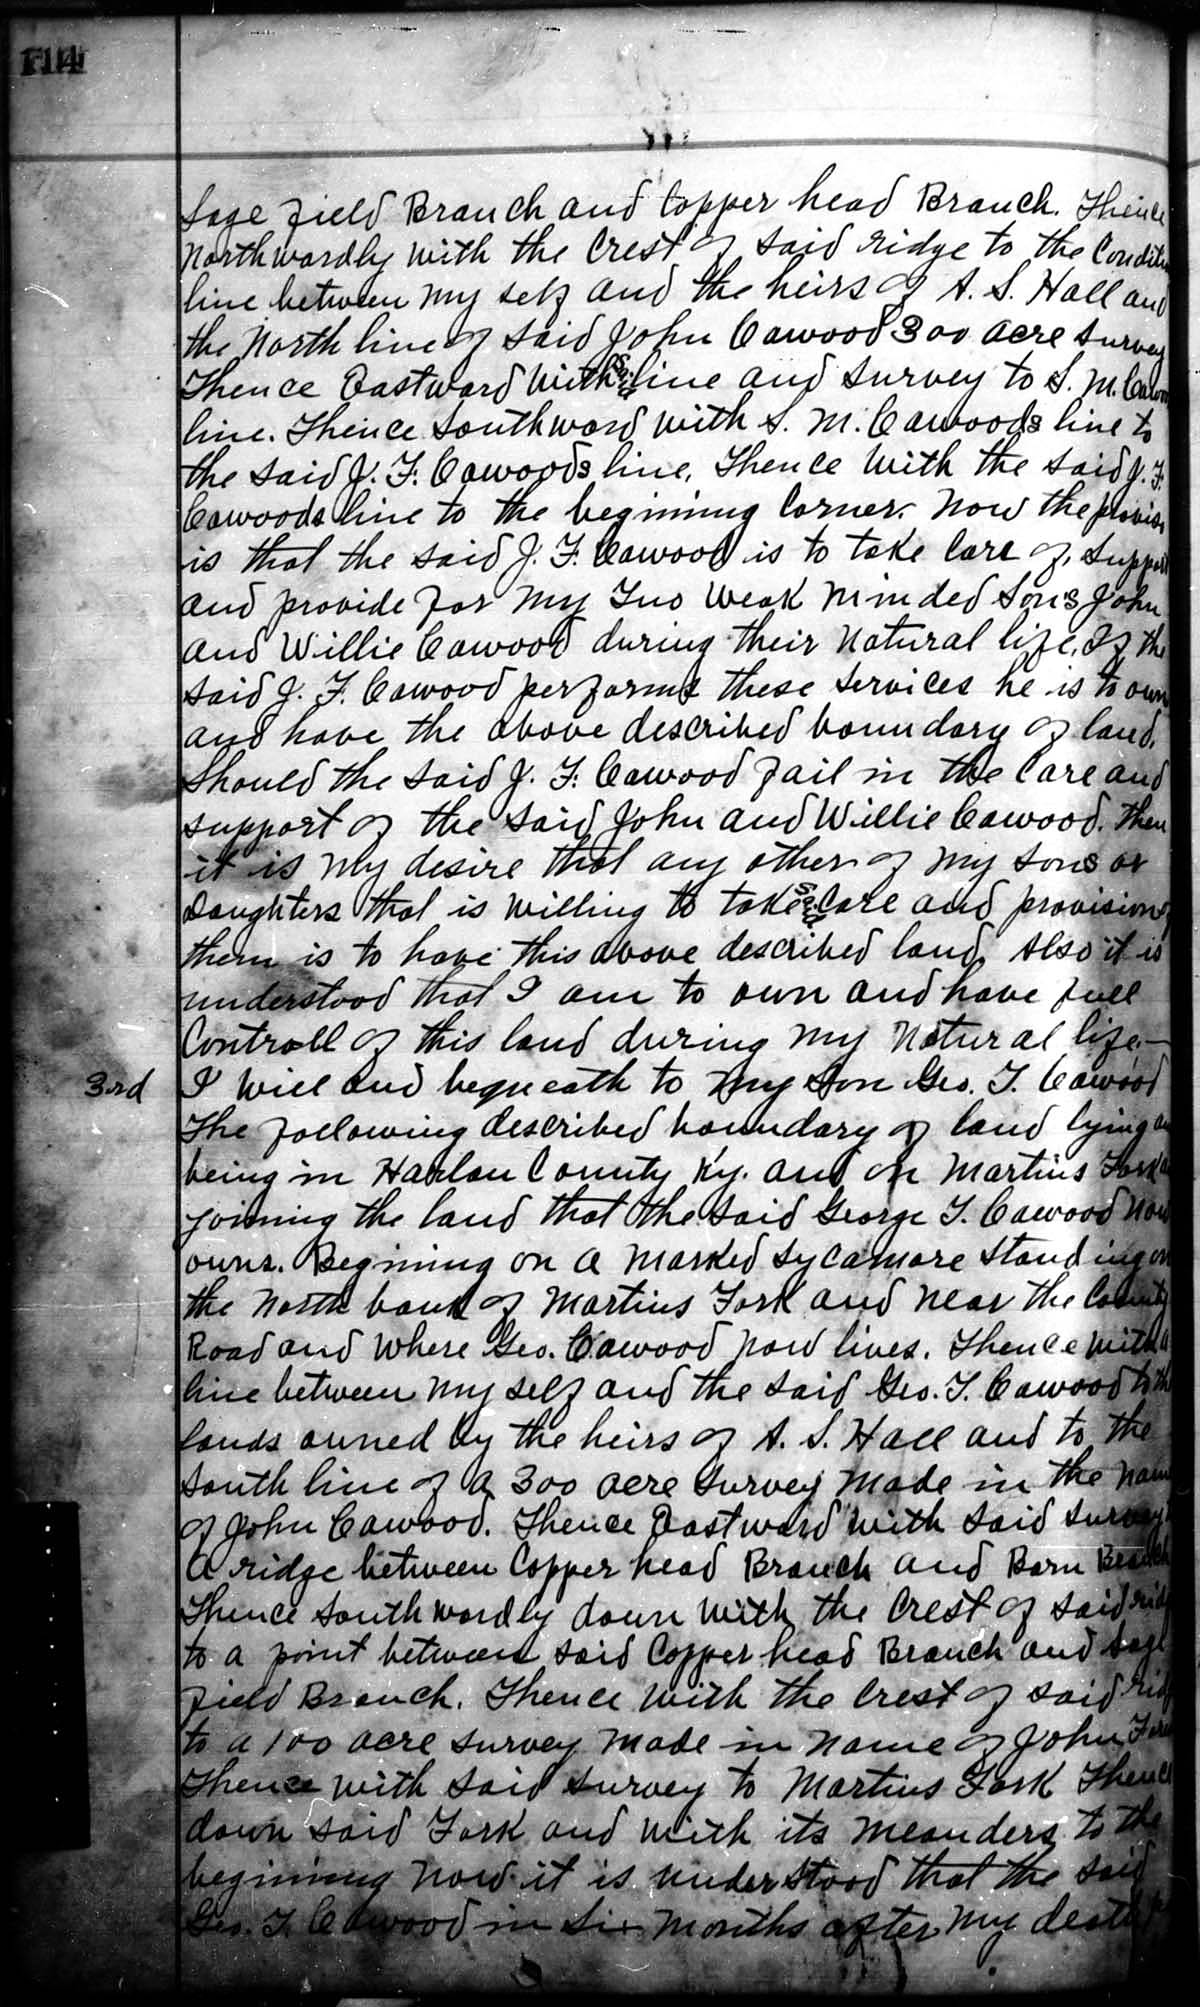 114
Sage Field Branch and Copper head Branch. Thence
Northwardly with the Crest of said ridge to the Conditi
line between my self and the heirs of A. S. Hall and
the North line of said John Cawood 300 acre survey
Thence Eastward with sd line and survey to S. M. Cawood
line. Thence Southward with S. M. Cawoods line to
the said J. F. Cawoods line. Thence with the said J. F.
Cawoods line to the begining Corner. Now the proviso
is that the said J. F. Cawood is to take Care of, support
and provide for my Two weak minded sons John
and Willie Cawood during their Natural life. If the
said J. F. Cawood performs these services he is to own
and have the above described boundary of land.
Should the said J. F. Cawood fail in the Care and
support of the said John and Willie Cawood. Then
it is my desire that any other of my sons or
Daughters that is willing to take Care and provision
them is to have this above described land. Also it is
understood that I am to own and have full
Controll of this land during my Natural life.—
3rd I will and bequeath to my son Geo. T. Cawood
The following described boundary of land lying and
being in Harlan County Ky. and on Martins Fork
joining the land that the said George T. Cawood now
owns. Begining on a marked sycamore standing on
the North bank of Martins Fork and near the County
Road and where Geo. Cawood now lives. Thence with a
line between my self and the said Geo. T. Cawood to the
lands owned by the heirs of A. S. Hall and to the
South line of a 300 acre survey made in the name
of John Cawood. Thence Eastward with said survey
a ridge between Copper head Branch and Barn Branch
Thence southwardly down with the Crest of said ridge
to a point between said Copper head Branch and Sage
Field Branch. Thence with the Crest of said ridge
to a 100 acre survey made in name of John
Thence with said survey to Martins Fork Thence
down said Fork and with its meanders to the
begining Now it is understood that the said
Geo. T. Cawood in six months after my death